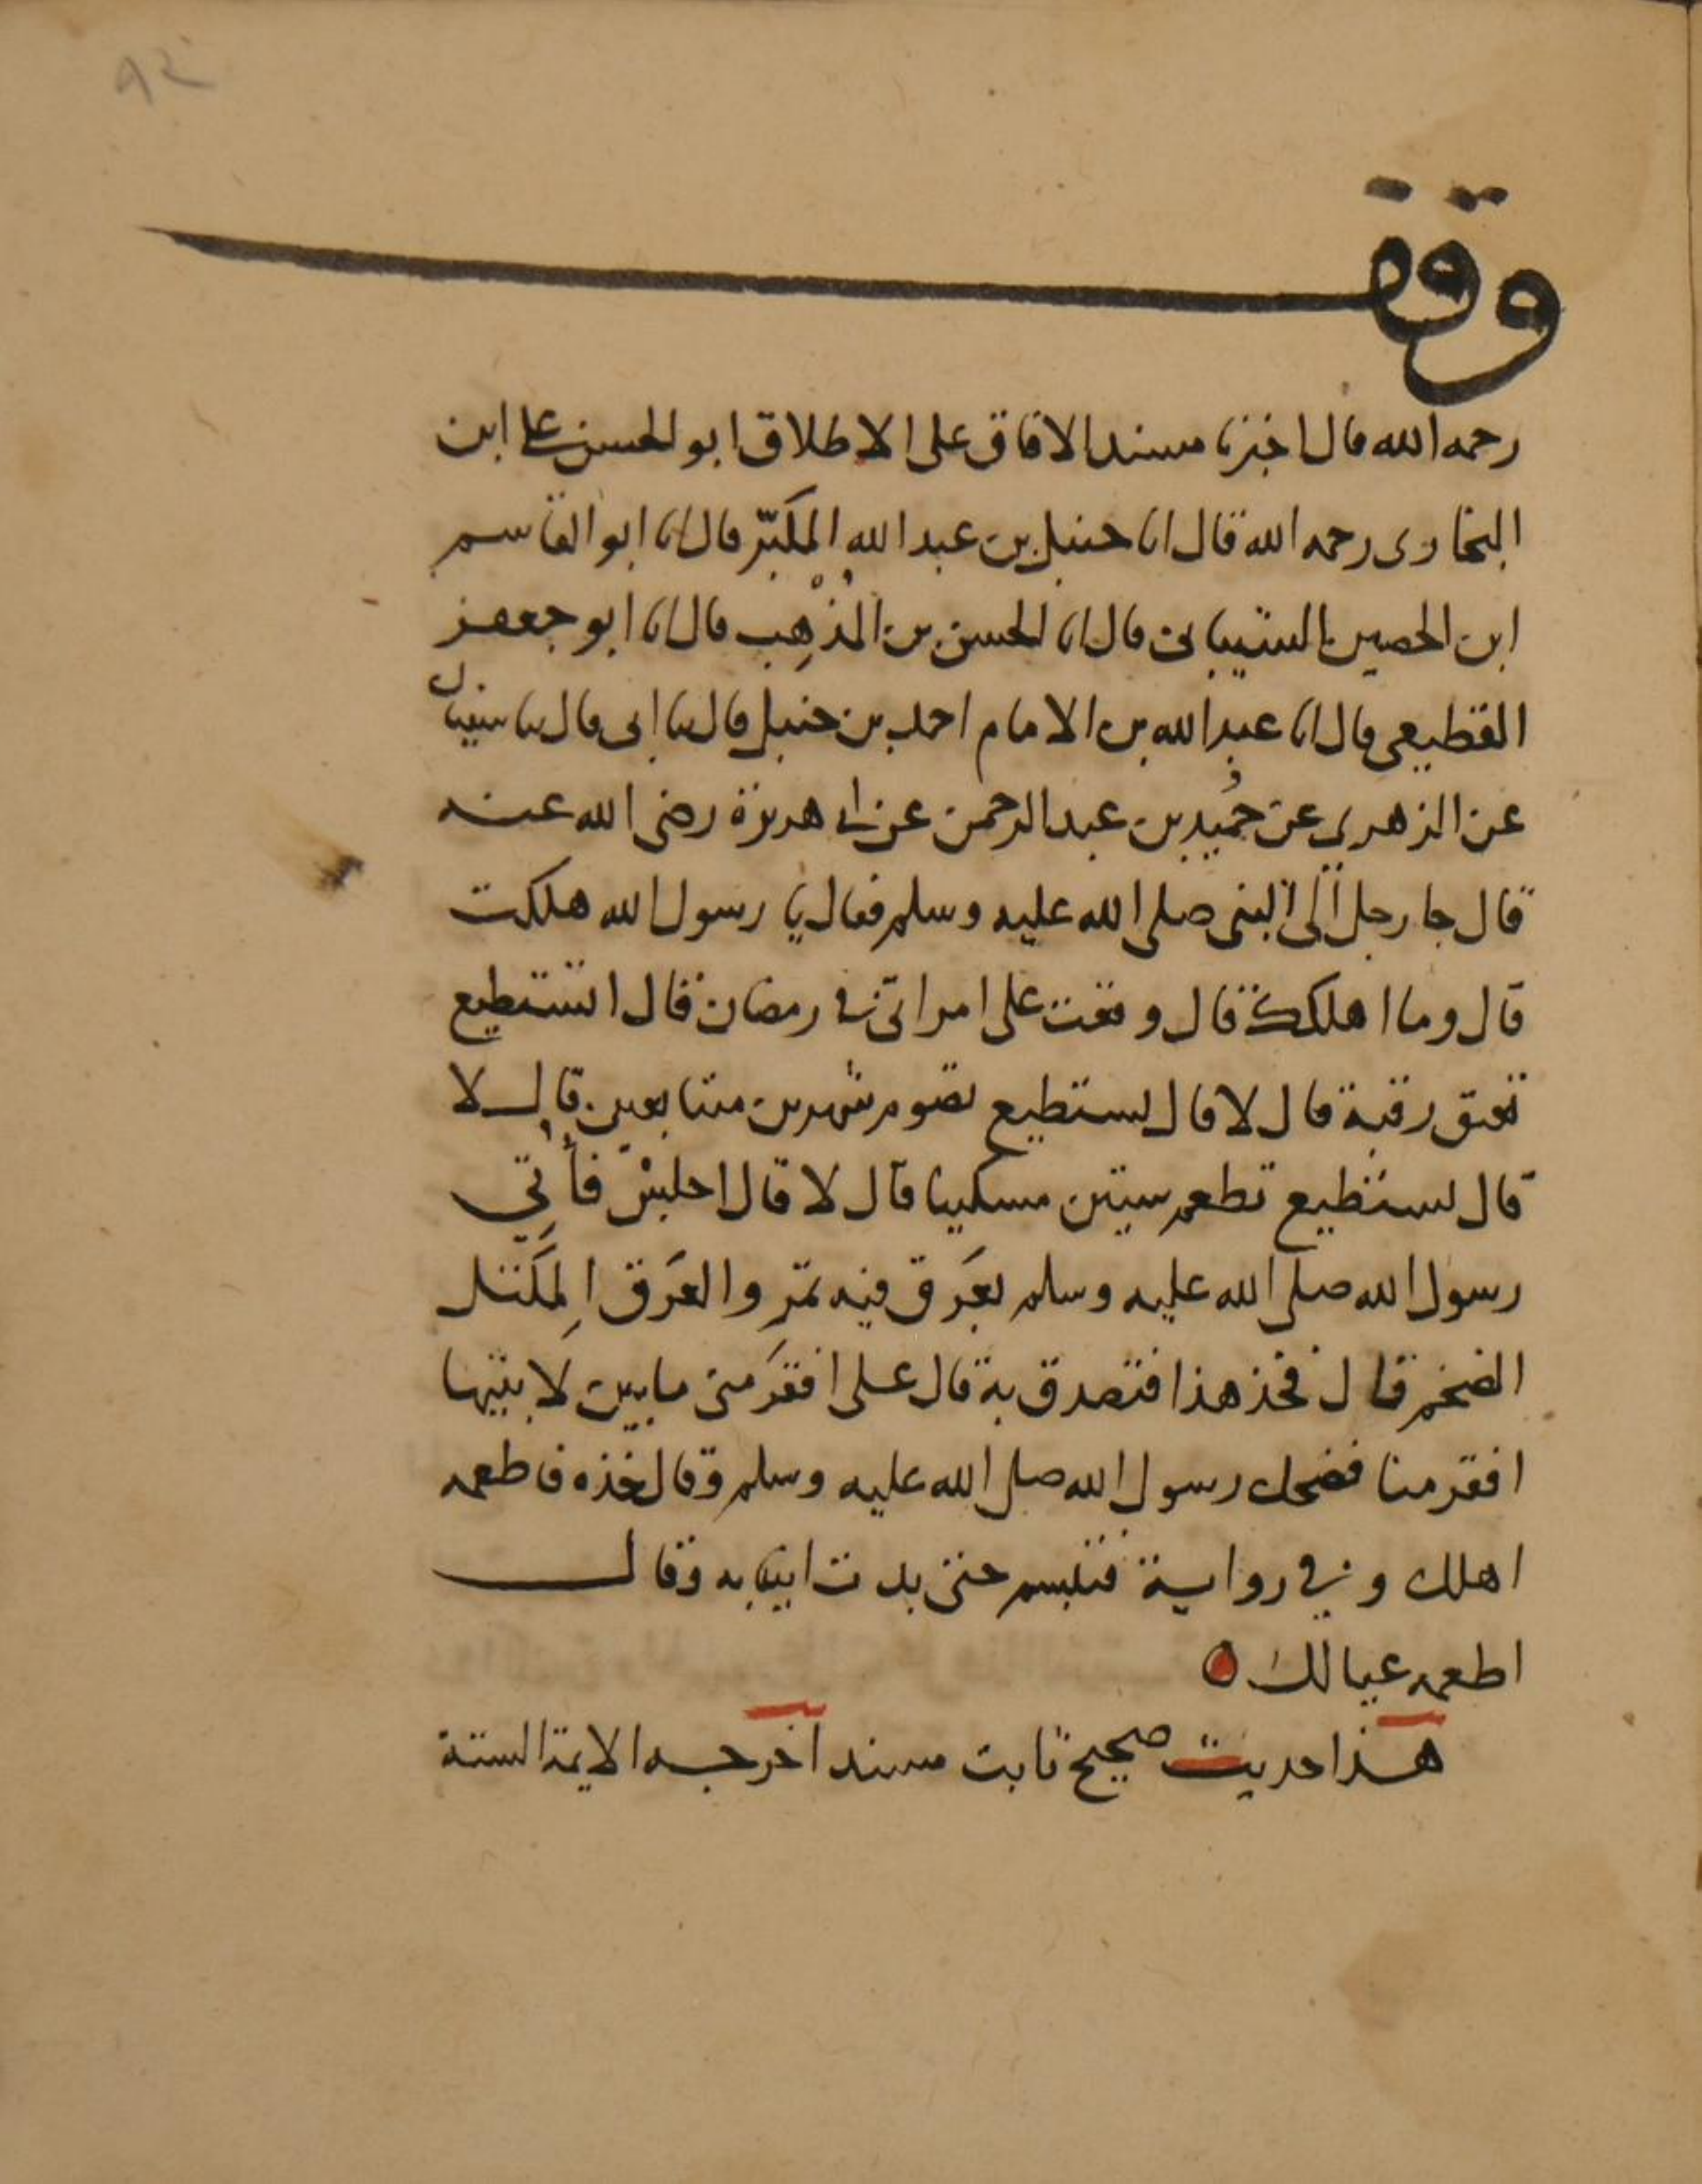 ٩٢
وقف
رحمه الله قال اخبرنا مسند الافاق على الاطلاق ابو الحسن على ابن
البخارى رحمه الله قال انا حنبل بن عبد الله المكبّر قال انا ابو القاسم
ابن الحصين الشيبانى قال انا الحسن بن المُذْهِب قال انا ابو جعفر
القطيعى قال انا عبد الله بن الامام احمد بن حنبل قال ثنا ابى قال ثنا سفيان
عن الزهرى عن حُميد بن عبد الرحمن عن ابى هريرة رضى الله عنه
قال جا رجل الى النبى صلى الله عليه وسلم فقال يا رسول الله هلكت
قال وما اهلكك قال وقعت على امراتى فى رمضان قال اتستطيع
تعتق رقبة قال لا قال تستطيع تصوم شهرين متتابعين قال لا
قال تستطيع تطعم ستين مسكينا قال لا قال اجلسْ فأُتِي
رسول الله صلى الله عليه وسلم بعَرق فيه تمر والعَرق المِكَتل
الضخم قال فخذ هذا فتصدق به قال على افقرَ منى ما بين لابتيها
افقر منا فضحك رسول الله صلى الله عليه وسلم وقال خذه فاطعمه
اهلك وفي رواية فتبسم حتى بدت انيابه وقال
اطعمه عيالك
هذا حديث صحيح ثابت مسند اخرجه الايمة الستة